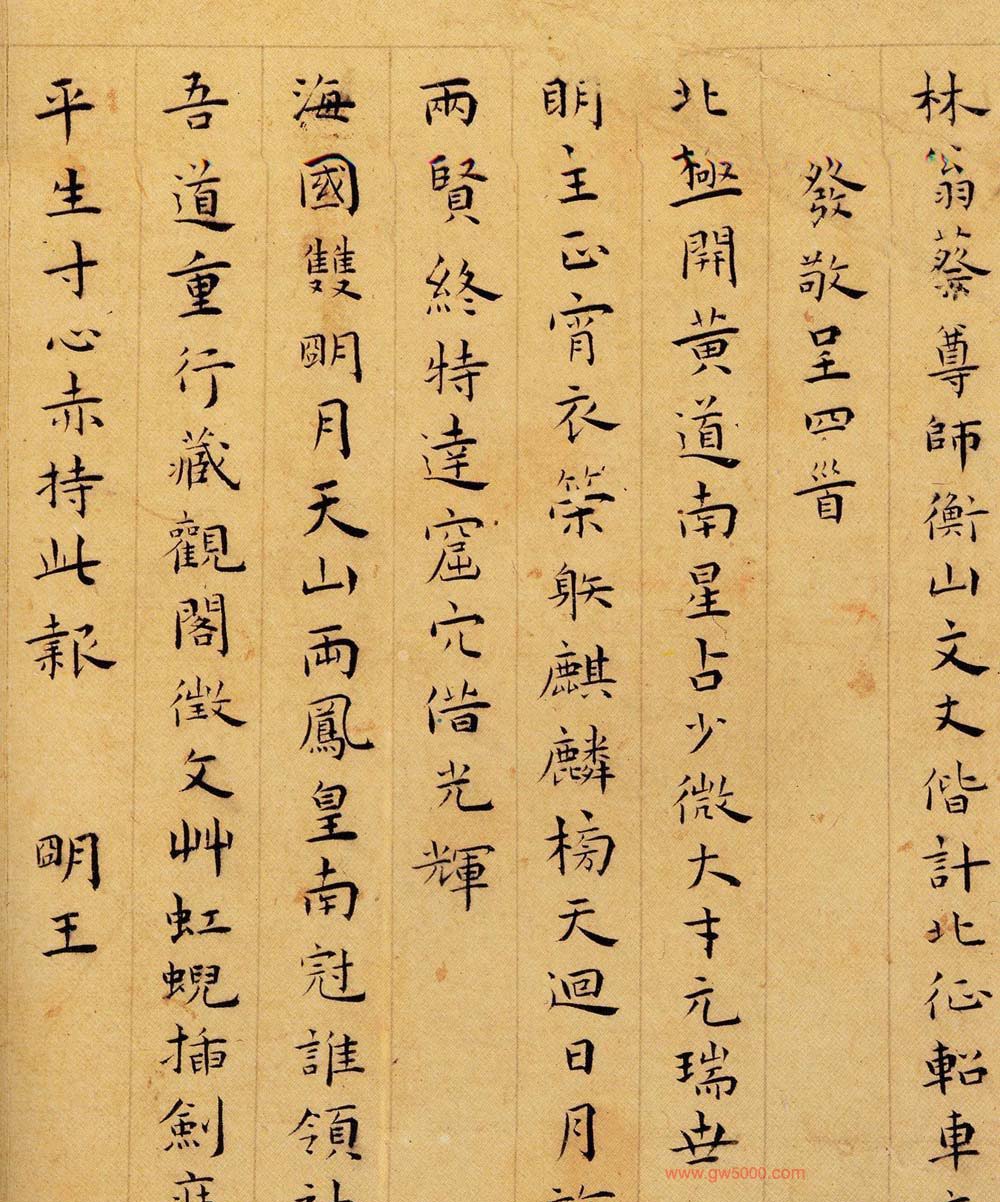 林翁蔡尊師衡山文丈偕計北征軺車
發敬呈四首
北極開黃道南星占少微大才元瑞世
明主正宵衣榮躲麒麟榜天迴日月
兩賢終特達窟穴借光輝
海國雙朙月天山兩鳳皇南冠誰領
吾道重行藏觀閣徵文艸虹蜺插劍
平生寸心赤持此報 朙王
www.gw5000.com